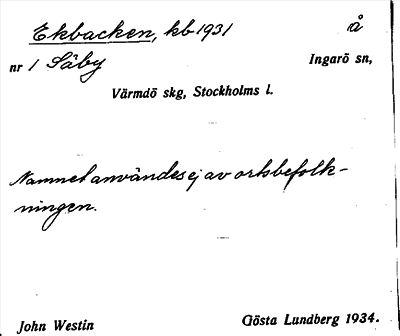 Ekbacken, kb 1931 å
nr 1 Säby Ingarö sn,
Värmdö skg, Stockholms l.
Namnet användes ej av ortsbefolk-
ningen.
John Westin Gösta Lundberg 1934.